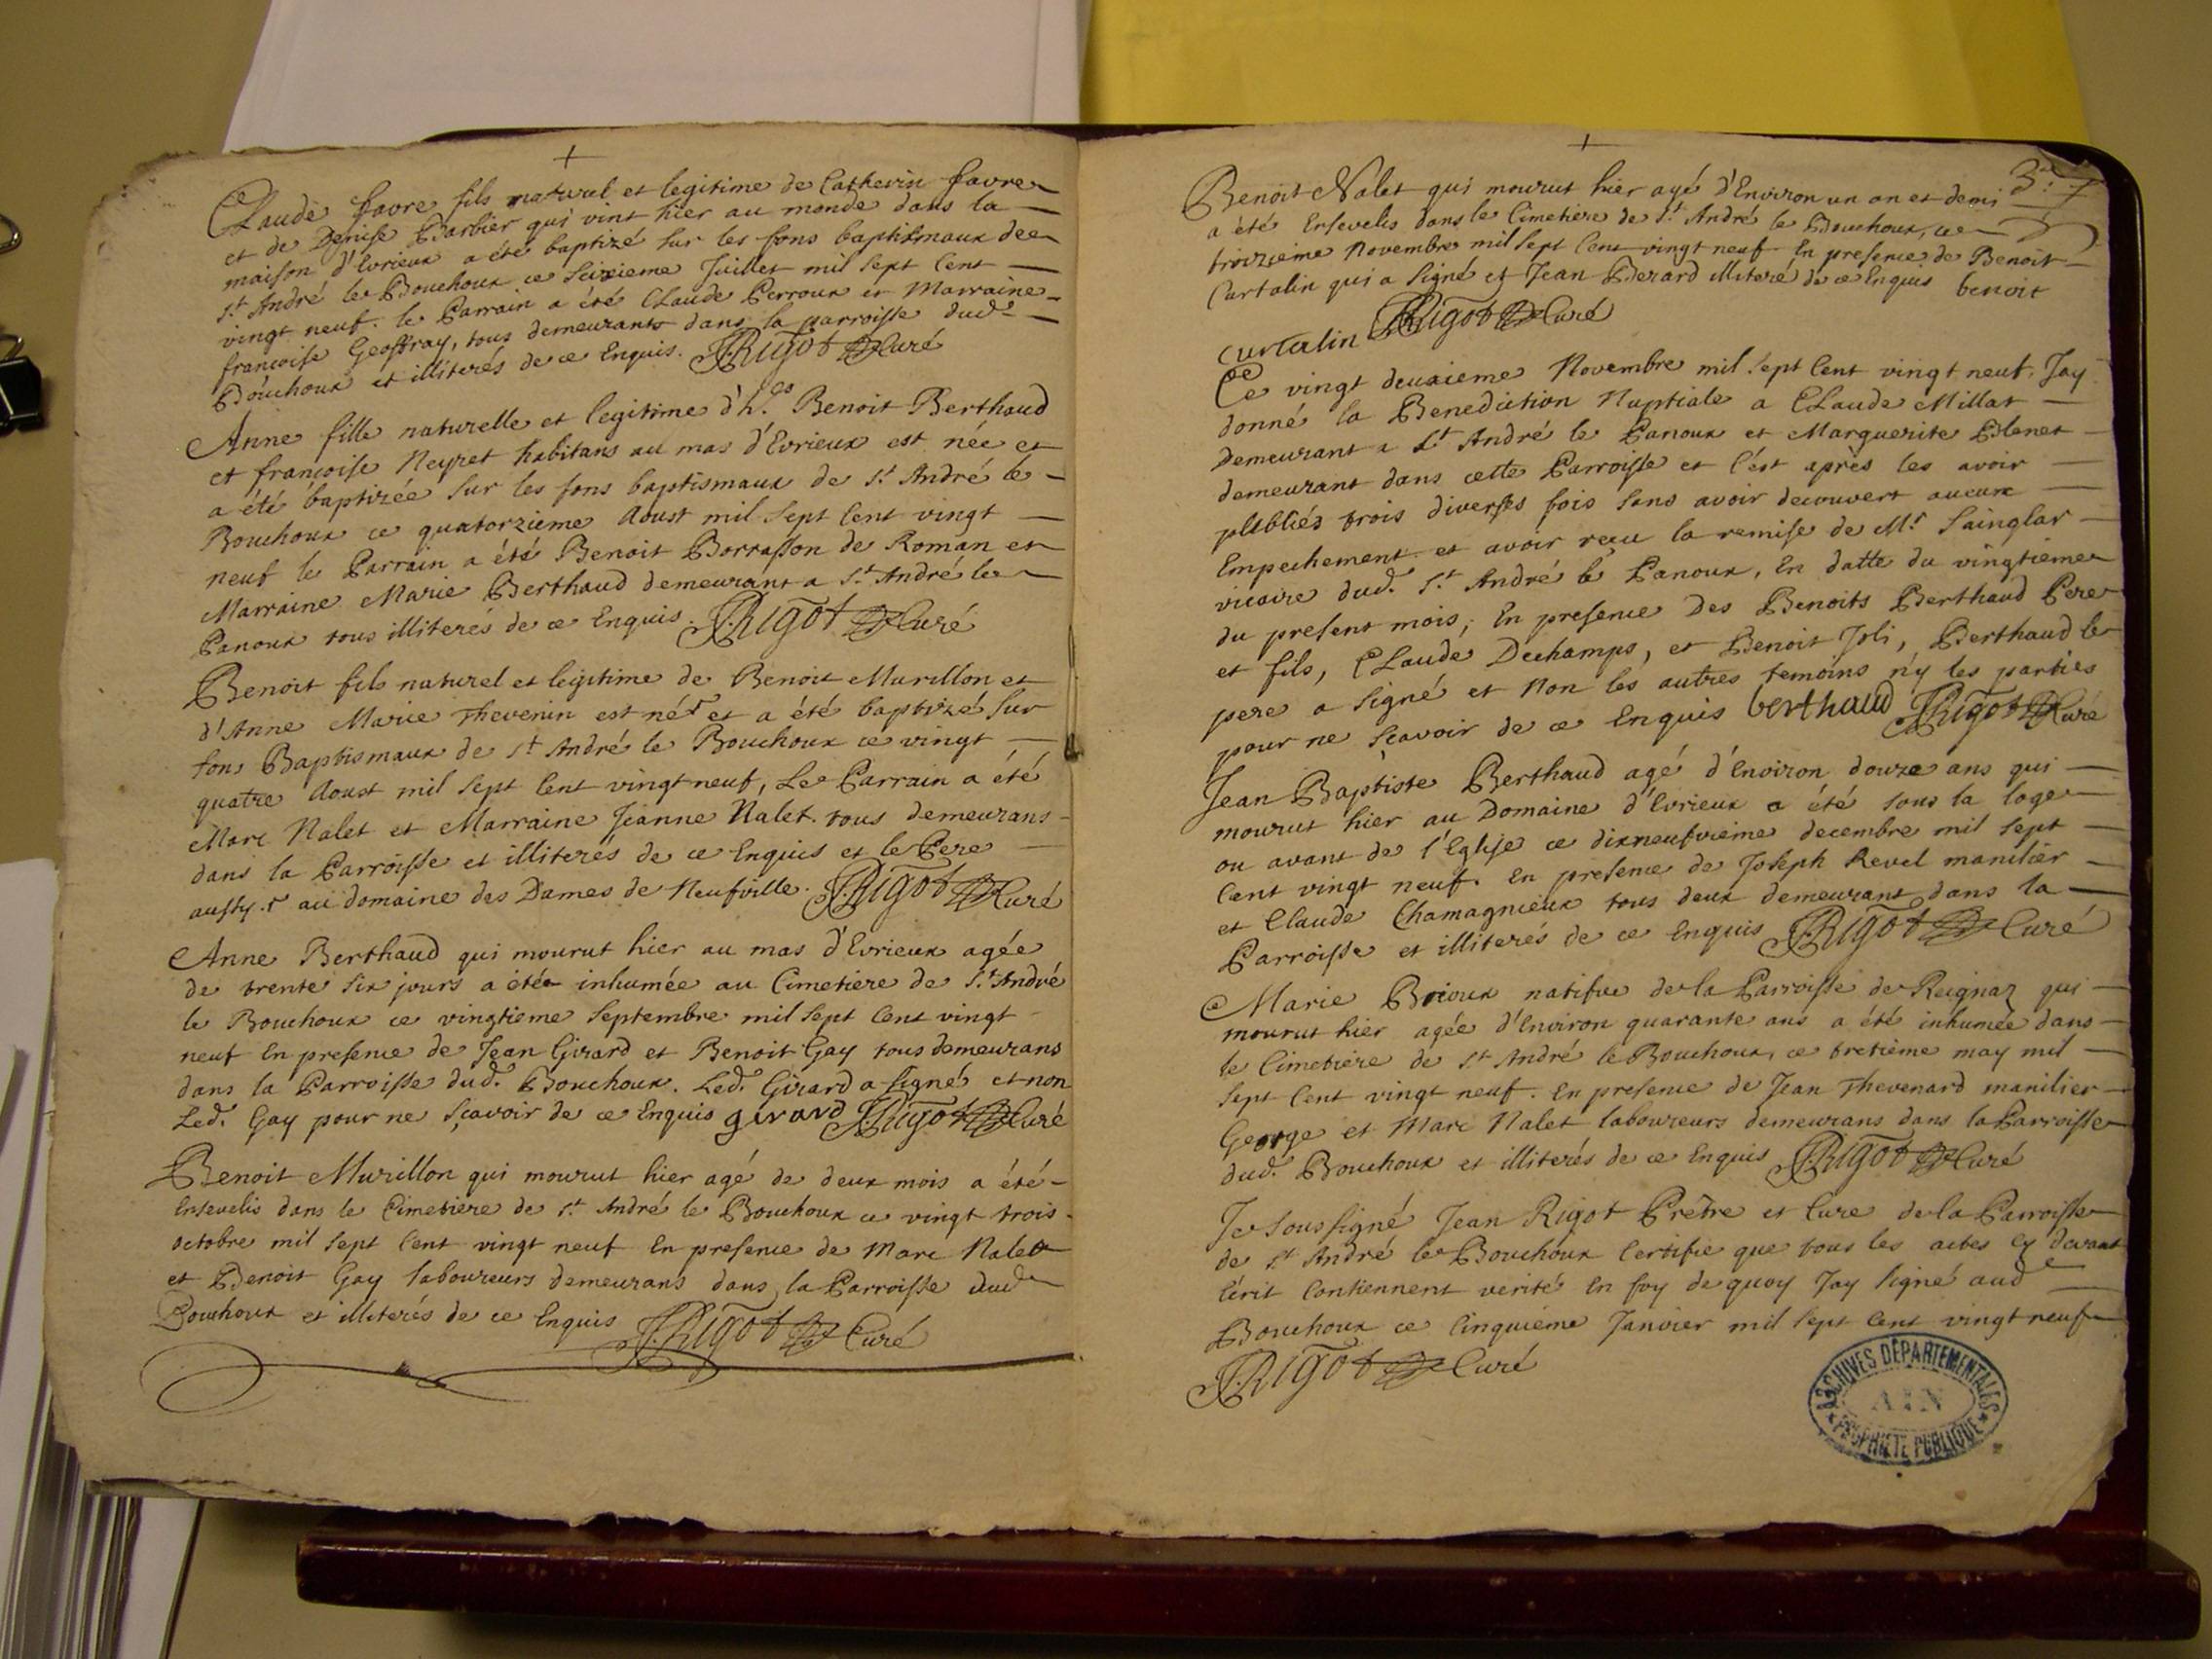 Claude favre fils naturel et legitime de Catherin favre
et de Denise Barbier qui vint hier au monde dans la
maison d'Evrieux a été baptizé sur les fons baptismaux de
St. André le Bouchoux ce seixieme Juillet mil sept Cent
vingt neuf. le Parrain a été Claude Perroux et Marraine
francoise Geoffray, tous demeurants dans la parroisse dud.
Bouchoux et illiterés de ce Enquis. J. RIGOT Curé
Anne fille naturelle et legitime d'h. Benoit Berthaud
et francoise Neyret habitans au mas d'Evrieux est née et
a été baptizée sur les fons baptismaux de St. André le
Bouchoux ce quatorzieme Aoust mil sept Cent vingt
neuf le Parrain a été Benoit Borrasson de Roman et
Marraine Marie Berthaud demeurant a St. André le
Panoux tous illiterés de ce Enquis. J. RIGOT Curé
Benoit fils naturel et legitime de Benoit Murillon et
d'Anne Marie Thevenin est né et a été baptizé sur
fons Baptismaux de St André le Bouchoux ce vingt
quatre Aoust mil sept Cent vingt neuf, Le Parrain a été
Marc Nalet et Marraine Jeanne Nalet. tous demeurans
dans la Parroisse et illiterés de ce Enquis et le Pere
aussy. au domaine des Dames de Neufville. J. RIGOT Curé
Anne Berthaud qui mourut hier au mas d'Evrieux agée
de trente six jours a étée inhumée au Cimetiere de St. André
le Bouchoux ce vingtieme Septembre mil sept Cent vingt
neuf En presence de Jean Girard et Benoit Gay tous demeurans
dans la Parroisse dud. Bouchoux. Led. Girard a signé et non
Led. Gay pour ne sçavoir de ce Enquis girard J. Rigot Curé
Benoit Murillon qui mourut hier agé de deux mois a été
Ensevelis dans le Cimetiere de St. André le Bouchoux ce vingt trois
octobre mil sept Cent vingt neuf En presence de Marc Nalet
et Benoit Gay laboureurs demeurans dans la Parroisse dud
Bouchoux et illiterés de ce Enquis J. RIGOT Curé
Benoit Nalet qui mourut hier agé d'Environ un an et demi 3e
a été Ensevelis dans le Cimetiere de St. André le Bouchoux, ce
troizieme Novembre mil sept Cent vingt neuf En presence de Benoit
Curtalin qui a signé et Jean Berard illiteré de ce Enquis benoit
curtalin J. RIGOT Curé
Ce vingt deuxieme Novembre mil sept Cent vingt neuf. Jay
donné la Benediction Nuptiale a Claude Millat
Demeurant a St André le Panoux et Marguerite Blanet
demeurant dans cette Parroisse et c'est après les avoir
publiés trois diverses fois sans avoir decouvert aucun
Empechement et avoir reçu la remise de Mr. Sainglar
vicaire dud. St. André le Panoux, En datte du vingtieme
du present mois, En presence Des Benoits Berthaud Pere
et fils, Claude Dechamps, et Benoit Joli, Berthaud le
pere a signé et non les autres temoins n'y les parties
pour ne sçavoir de ce Enquis berthaud J. RIGOT Curé
Jean Baptiste Berthaud agé d'Environ douze ans qui
mourut hier au Domaine d'Evrieux a été sous la loge
ou avant de l'Eglise ce dixneufvieme decembre mil sept
Cent vingt neuf. En presence de Joseph Revel manilier
et Claude Chamagnieux tous deux demeurant dans la
Parroisse et illiterés de ce Enquis J. RIGOT Curé
Marie Brioux natifve de la Parroisse de Reignaz qui
mourut hier agée d'Environ quarante ans a été inhumée dans
le Cimetiere de St André le Bouchoux, ce tretieme may mil
sept Cent vingt neuf. En presence de Jean Thevenard manilier
George et Marc Nalet laboureurs demeurans dans la Parroisse
dud. Bouchoux et illiterés de ce Enquis J. RIGOT Curé
Je soussigné Jean Rigot Prêtre et Cure de la Parroisse
de St André le Bouchoux Certifie que tous les actes cy devant
Ecrit Contiennent verité En foy de quoy Jay signé aud
Bouchoux ce Cinquiéme Janvier mil sept Cent vingt neuf
J. RIGOT Curé
ARCHIVES DÉPARTEMENTALES
AIN
PROPRIÉTÉ PUBLIQUE